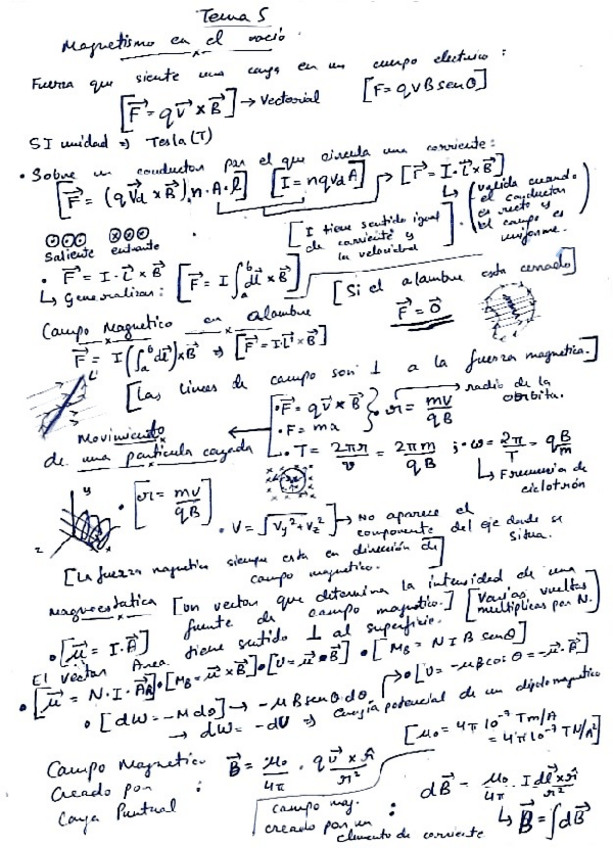 Tema 5
Magnetismo en el vacío
Fuerza que siente una carga en un campo electrico:
[F⃗ = q v⃗ x B⃗] → Vectorial [F = Q V B senθ]
SI unidad ⇒ Tesla (T)
• Sobre un conductor por el que circula una corriente:
[F⃗ = (q V⃗d x B⃗) n·A·l] [I = nqVdA] → [F⃗ = I·l⃗ x B⃗]
↳ (valida cuando el conductor es recto y el campo es uniforme.)
[I tiene sentido igual de corriente y la velocidad]
Saliente entrante
• F⃗ = I·l⃗ x B⃗
↳ Generalizan: [F⃗ = I∫ₐᵇ dl⃗ x B⃗]
[Si el alambre esta cerrado]
F⃗ = 0⃗
Campo Magnetico en alambre
F⃗ = I(∫ₐᵇ dl⃗) x B⃗ ⇒ [F⃗ = I·L⃗ x B⃗]
[Las lineas de campo son ⊥ a la fuerza magnetica.]
Movimiento de una particula cargada
• F⃗ = q v⃗ x B⃗
• F = ma
• r = mv/qB → radio de la orbita.
• T = 2πr/v = 2πm/qB ; • ω = 2π/T = qB/m
↳ Frecuencia de ciclotrón
y
z x
• [r = mv/qB]
• V = √(Vy² + Vz²) → No aparece el componente del eje donde se situa.
[La fuerza magnetica siempre esta en dirección del campo magnetico.
Magnetostatica [un vector que determina la intensidad de una fuente de campo magnetico.] [Varias vueltas multiplicas por N.]
• [μ⃗ = I·A⃗]
El vector Area tiene sentido ⊥ al superficie.
• [μ⃗ = N·I·A⃗] • [M_B = μ⃗ x B⃗] • [U = μ⃗ • B⃗] • [M_B = N I B senθ]
• [dW = -M dθ] → -μ B senθ dθ • [U = -μB cosθ = -μ⃗·B⃗]
→ dW = -dU ⇒ Energía potencial de un dipolo magnetico
[μ₀ = 4π 10⁻⁷ Tm/A
= 4π 10⁻⁷ TN/A²]
Campo Magnetico Creado por Carga Puntual : B⃗ = μ₀/4π · q v⃗ x r̂/r²
campo mag. creado por un elemento de corriente : dB⃗ = μ₀/4π · I dl⃗ x r̂/r²
↳ B⃗ = ∫dB⃗